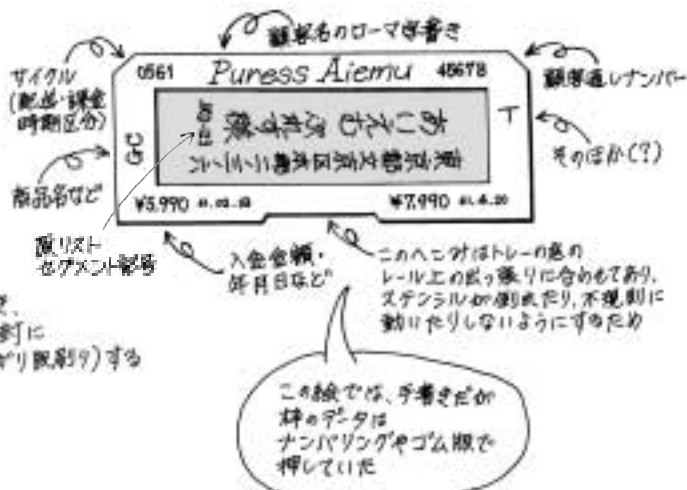 顧客名のローマ字書き
サイクル
(配送・課金
時期区分)
0561 Puress Aiemu 45678
顧客通しナンバー
GC
T
そのほか(?)
商品名など
あいえむ ぷれす様
¥5,990
¥7,990
原リスト
セグメント記号
入金金額・
年月日など
このへこみはトレーの底の
レール上の出っ張りに合わせてあり、
ステンシルが倒れたり、不規則に
動いたりしないようにするため
この絵では、手書きだが
枠のデータは
ナンバリングやゴム版で
押していた